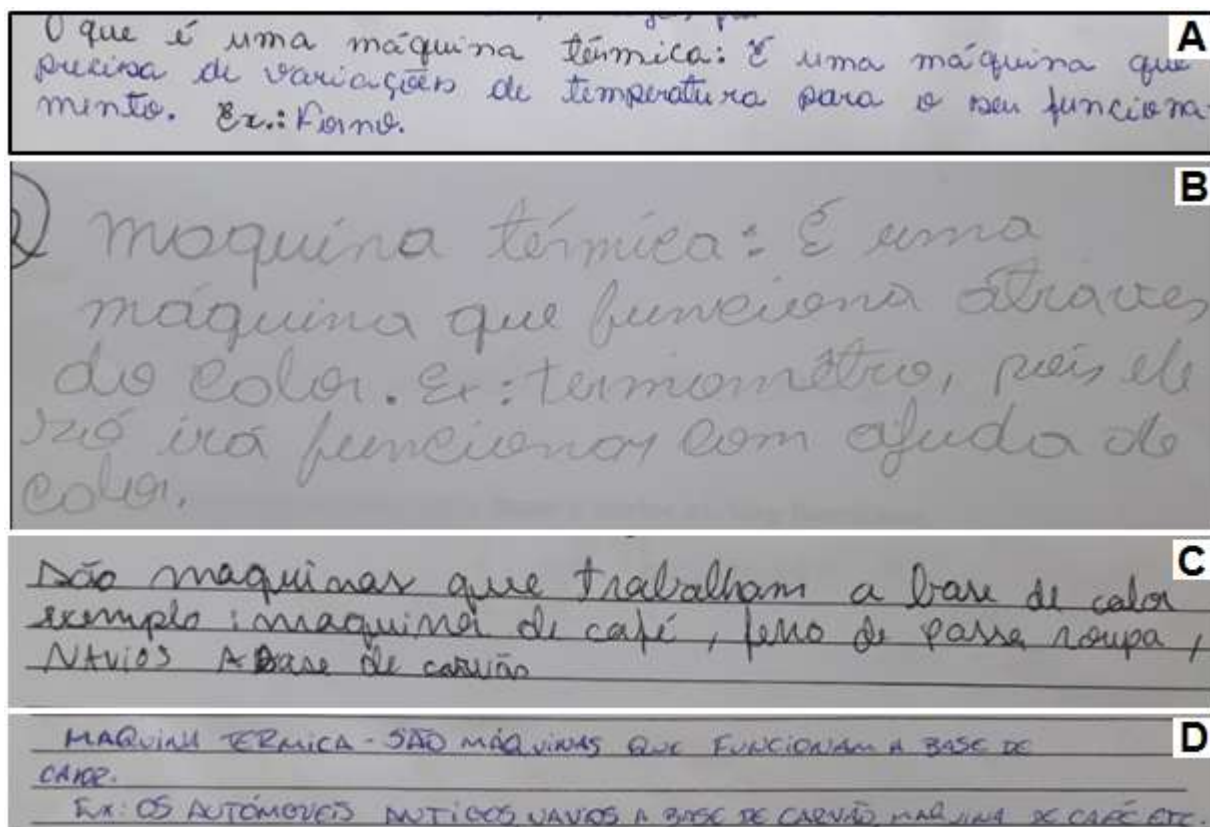 A
O que é uma máquina térmica: É uma máquina que
precisa de variações de temperatura para o seu funciona-
mento. Ex.: Forno.
B
maquina térmica: É uma
máquina que funciona átraves
do calor. Ex: termometro, pois ele
só irá funcionar com ajuda do
calor.
C
São maquinas que trabalham a base de calor
exemplo: maquina de café, ferro de passa roupa,
NAViOS A BASE de carvão
D
MAQUINA TERMICA - SÃO MÁQUINAS QUE FUNCIONAM A BASE DE
CALOR.
Ex: OS AUTÓMOVEIS ANTIGOS NAVIOS A BASE DE CARVÃO, MAQUINA DE CAFÉ ETC.